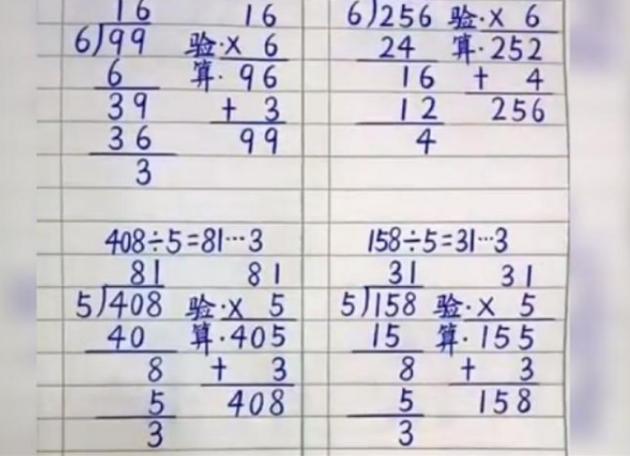 16 16
6)99 验·× 6
6 算·96
39 + 3
36 99
3
6)256 验·× 6
24 算·252
16 + 4
12 256
4
408÷5=81…3
81 81
5)408 验·× 5
40 算·405
8 + 3
5 408
3
158÷5=31…3
31 31
5)158 验·× 5
15 算·155
8 + 3
5 158
3